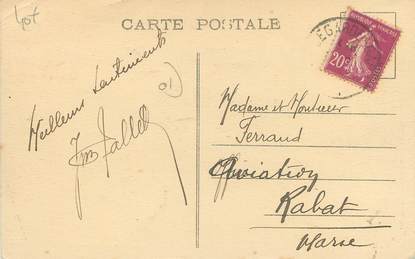 Lot
CARTE POSTALE
Meilleurs sentiments
REPUBLIQUE FRANÇAISE
20c
Madame et Monsieur
Ferrand
Aviation
Rabat
Maroc